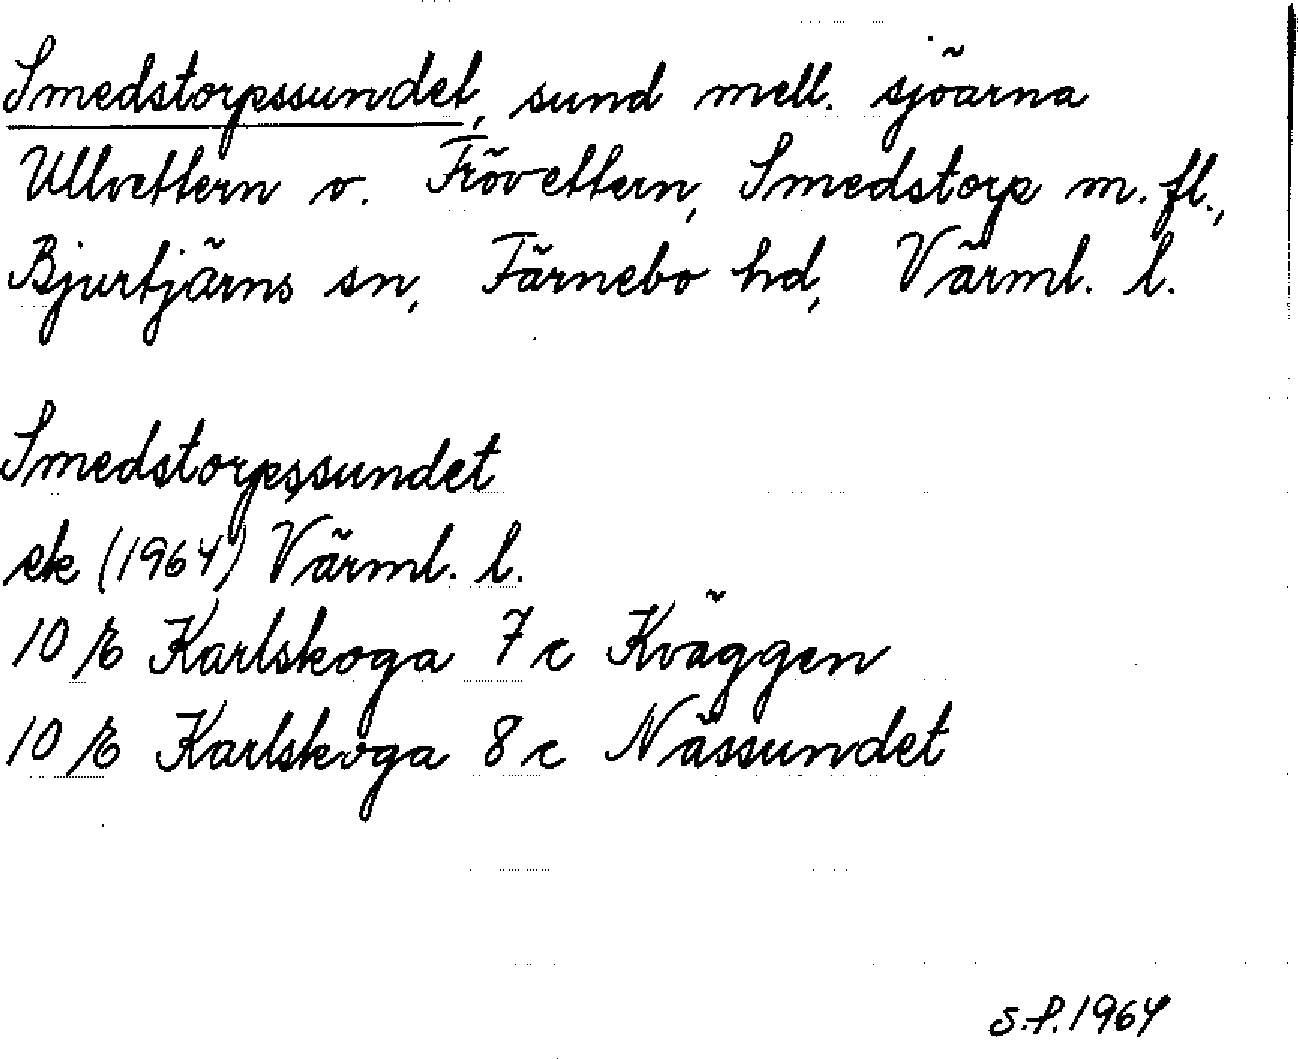 Smedstorpssundet, sund mell. sjöarna
Ullvettern o. Frövettern, Smedstorp m. fl.,
Bjurtjärns sn, Färnebo hd, Värml. l.
Smedstorpssundet
ek (1964) Värml. l.
10 E Karlskoga 7 c Kväggen
10 E Karlskoga 8 c Nässundet
S.F. 1964